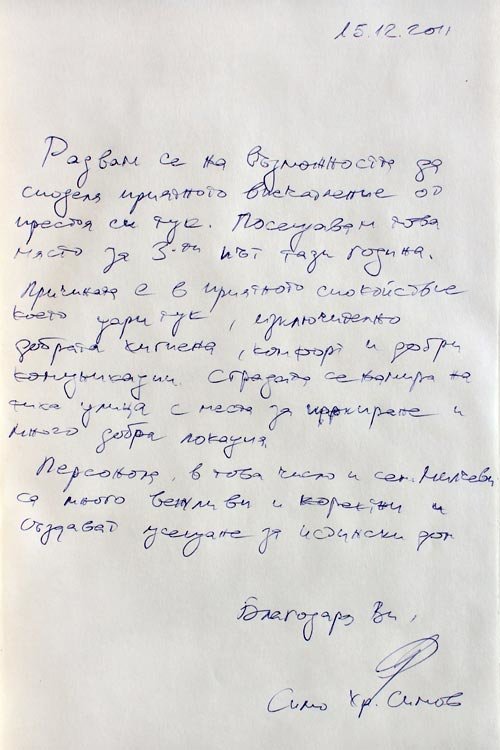 15.12.2011
Радвам се на възможността да
споделя приятното впечатление от
престоя си тук. Посещавам това
място за 3-ти път тази година.
Причината е в приятното спокойствие
което цари тук, изключително
добрата хигиена, комфорт и добри
комуникации. Сградата се намира на
тиха улица с места за паркиране и
много добра локация
Персонала, в това число и сем. Милчеви
са много вежливи и коректни и
създават усещане за истински дом
Благодаря Ви,
Симо Хр. Симов